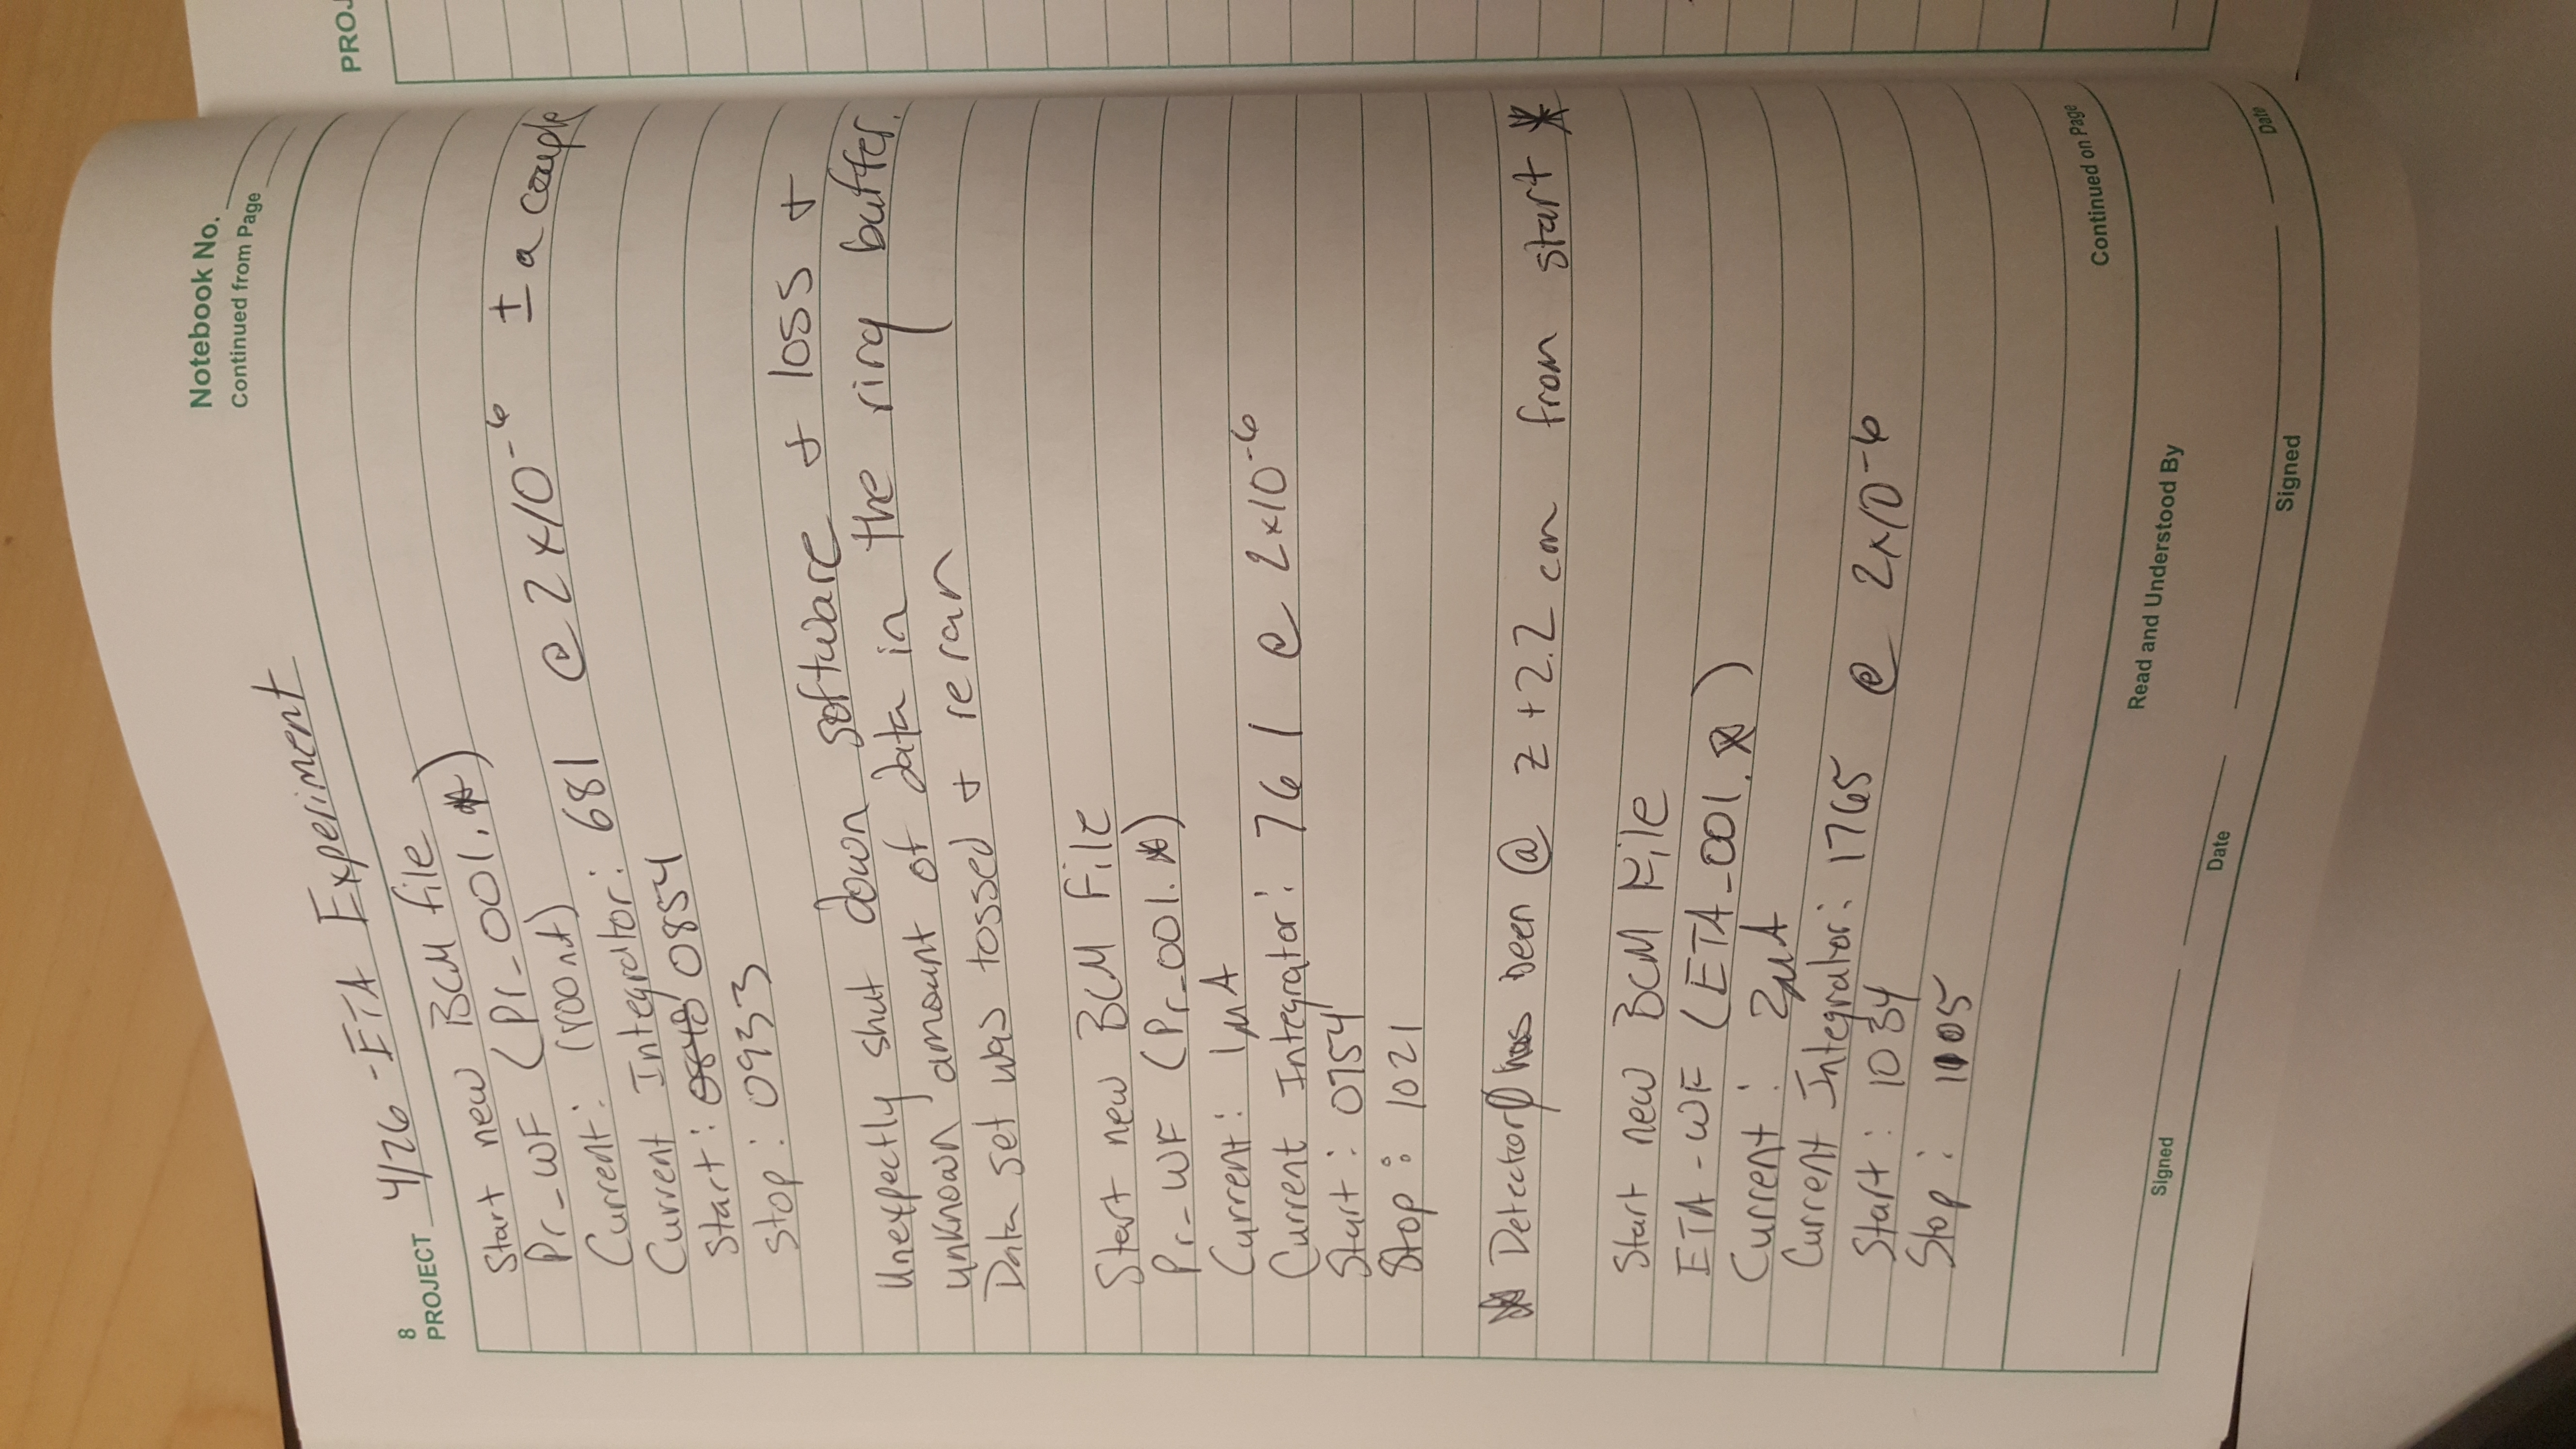 8
PROJECT 4/26 - ETA Experiment
Notebook No.
Continued from Page
Start new BCM file
Pr_WF (Pr_001.*)
Current: (100nA)
Current Integrator: 681 @ 2x10^-6 ± a couple
Start: 0854
Stop: 0933
Unexpectly shut down software + loss +
unknown amount of data in the ring buffer.
Data set was tossed + reran
Start new BCM file
Pr_WF (Pr_001.*)
Current: 1µA
Current Integrator: 761 @ 2x10^-6
Start: 0954
Stop: 1021
* Detector has been @ z +2.2 cm from start *
Start new BCM File
ETA-WF (ETA_001.*)
Current: 2µA
Current Integrator: 1765 @ 2x10^-6
Start: 1034
Stop: 1105
Continued on Page
Read and Understood By
Signed
Date
Signed
Date
PROJ